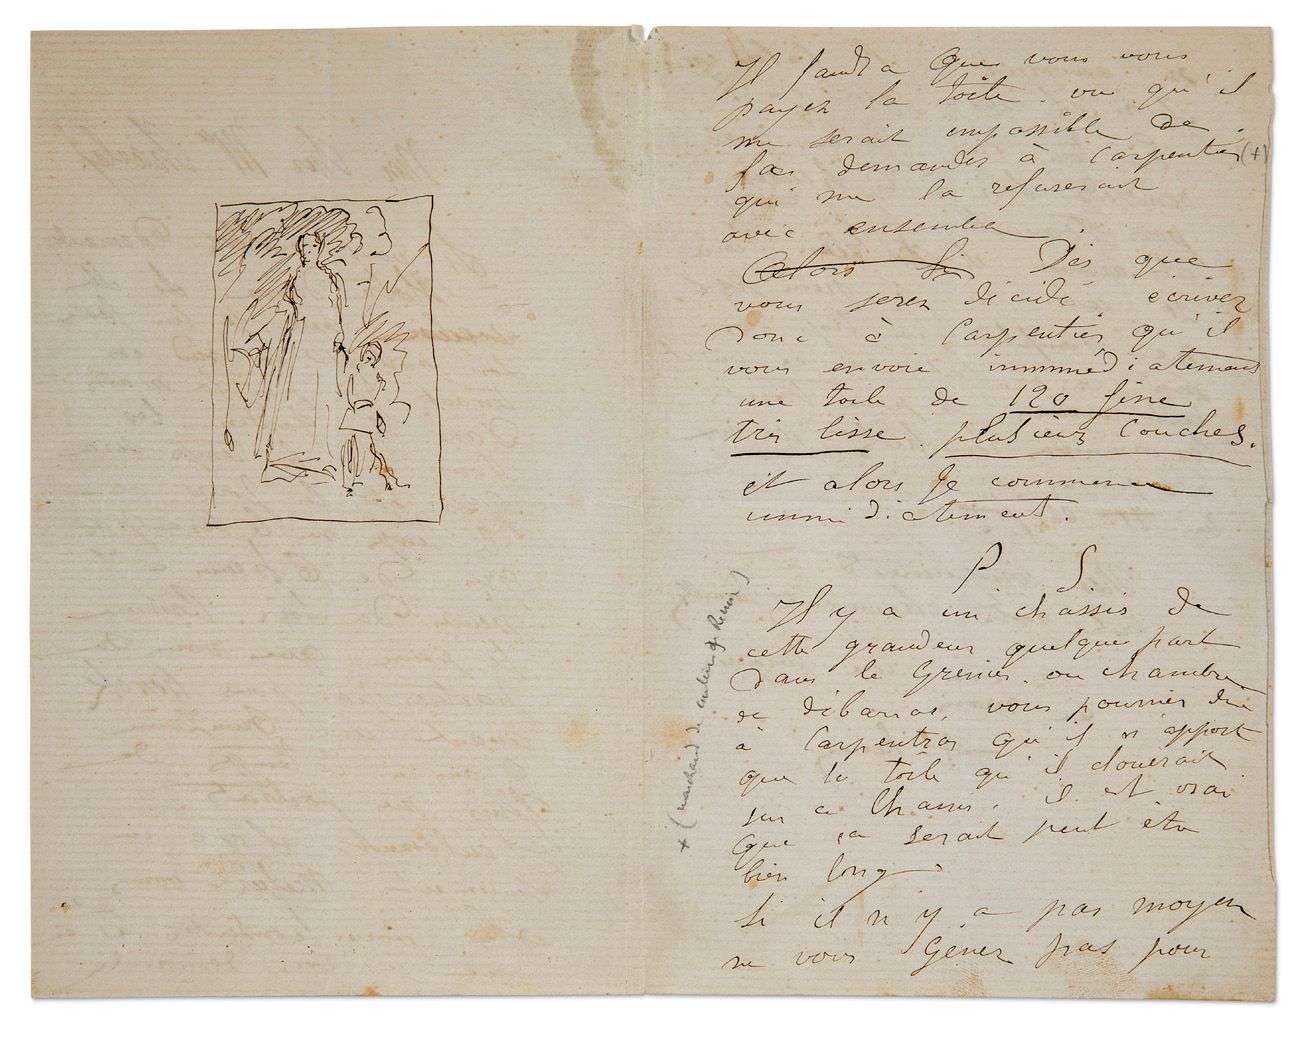 Il faudra que vous vous
payez la toile. vu qu'il
me serait impossible de
la demander à Carpentier (+)
qui me la refuserait
avec ensemble.
Alors si Dès que
vous serez décidé écrivez
donc à Carpentier qu'il
vous envoie immmédiatement
une toile de 120 fine
très lisse. plusieurs couches.
et alors je commence
immédiatement.
P S
Il y a un chassis de
cette grandeur quelque part
dans le Grenier. ou chambre
de débarras, vous pourriez dire
à Carpentier qu'il n'apport
que la toile qu'il clouerait
sur ce chassis. il est vrai
que ça serait peut être
bien long.
Si il n'y a pas moyen
ne vous Gênez pas pour
+ (marchand de couleurs de Renoir)